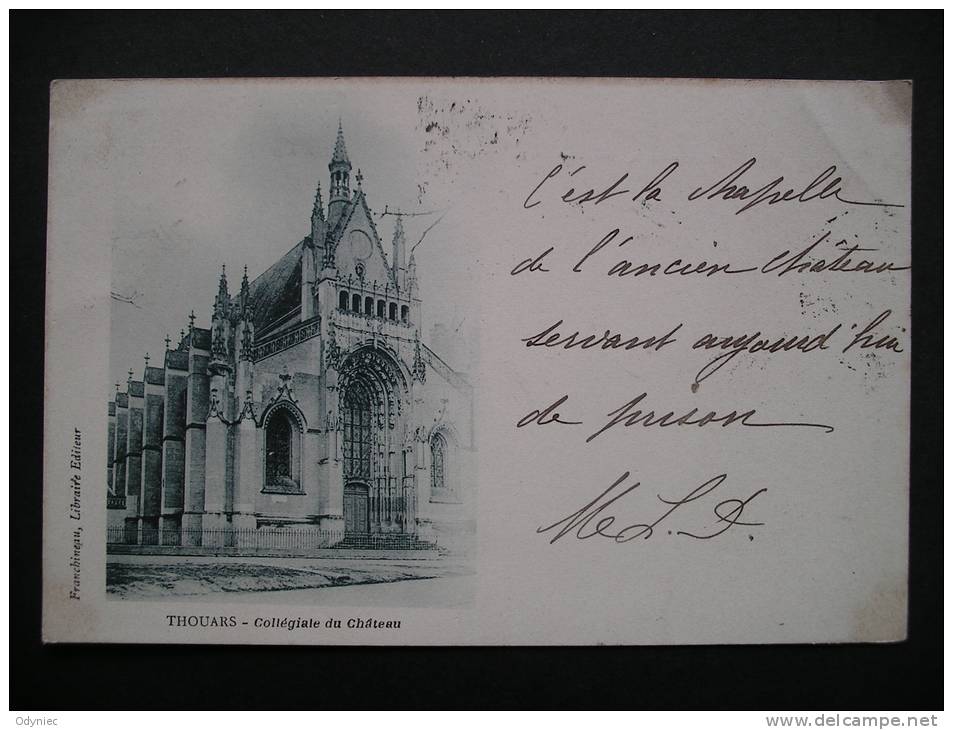 C'est la chapelle
de l'ancien Château
servant aujourd'hui
de prison
M L. D.
Franchineau, Libraire Editeur
THOUARS - Collégiale du Château
Odyniec
www.delcampe.net